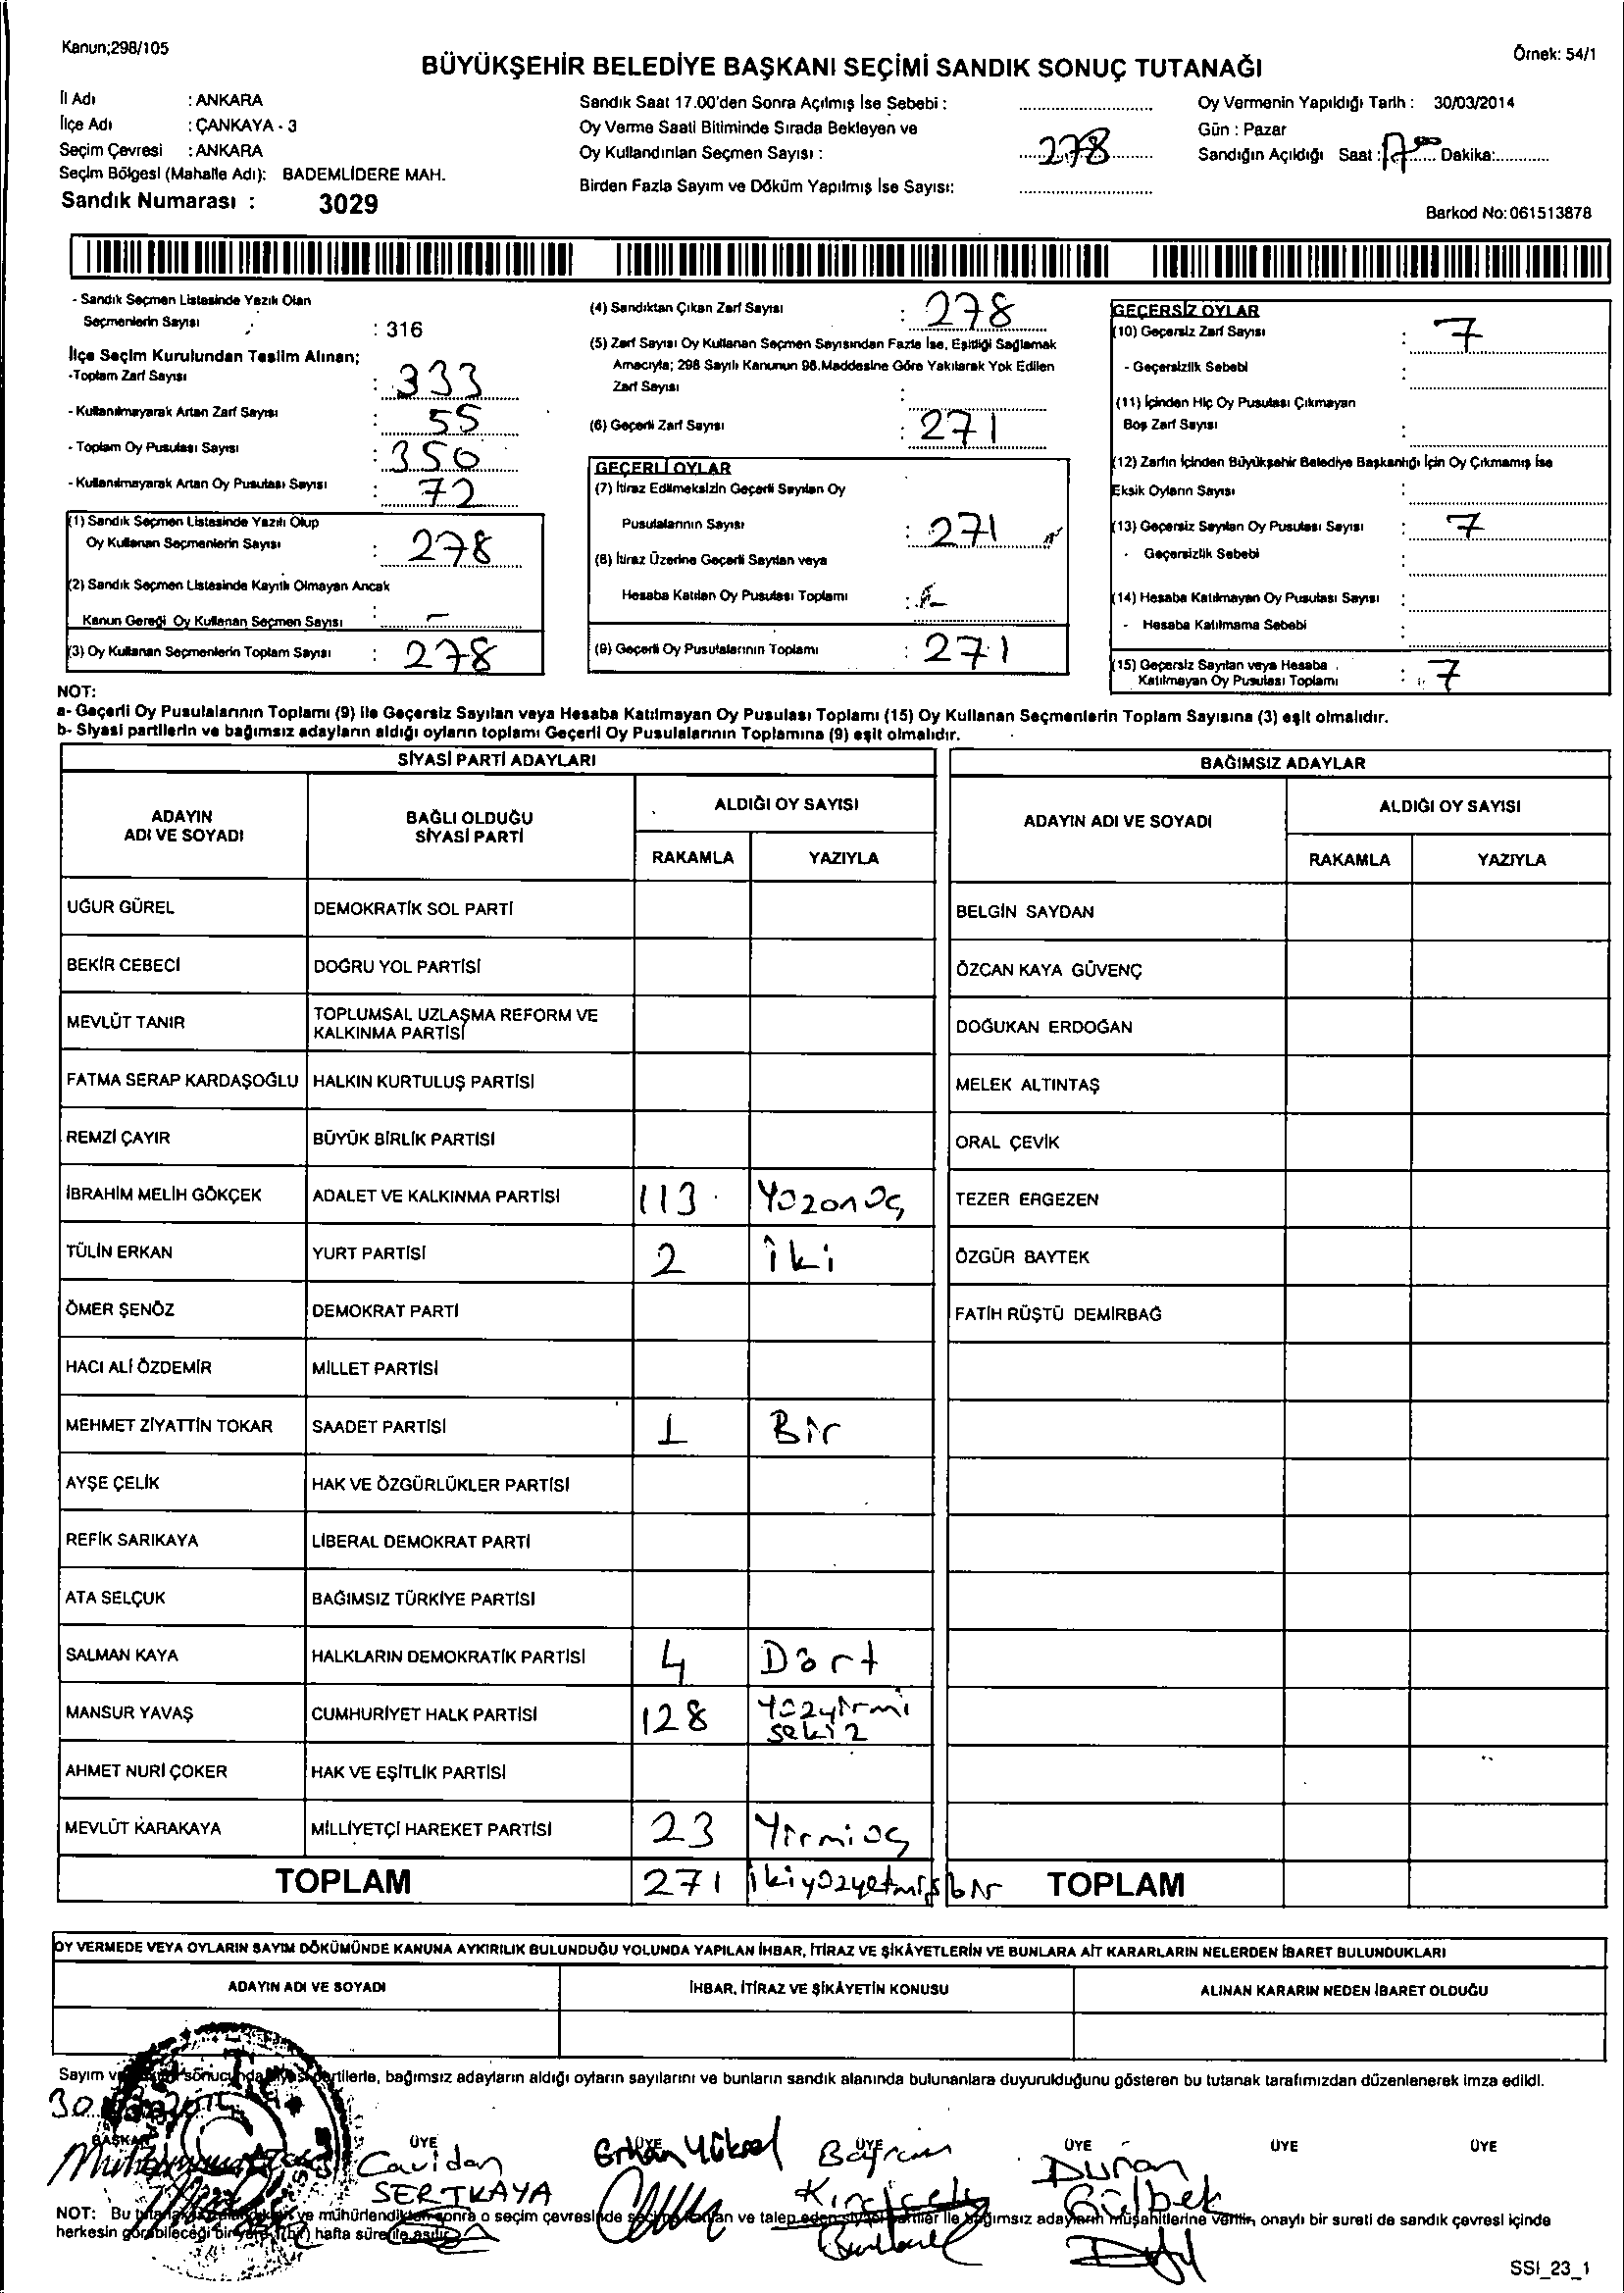 Kanun;298/105
Örnek: 54/1
BÜYÜKŞEHİR BELEDİYE BAŞKANI SEÇİMİ SANDIK SONUÇ TUTANAĞI
İl Adı : ANKARA
İlçe Adı : ÇANKAYA - 3
Seçim Çevresi : ANKARA
Seçim Bölgesi (Mahalle Adı): BADEMLİDERE MAH.
Sandık Numarası : 3029
Sandık Saat 17.00'den Sonra Açılmış İse Sebebi :
Oy Verme Saati Bitiminde Sırada Bekleyen ve
Oy Kullandırılan Seçmen Sayısı : 278
Birden Fazla Sayım ve Döküm Yapılmış İse Sayısı:
Oy Vermenin Yapıldığı Tarih : 30/03/2014
Gün : Pazar
Sandığın Açıldığı Saat : 17 00 Dakika:
Barkod No: 061513878
- Sandık Seçmen Listesinde Yazılı Olan
Seçmenlerin Sayısı : 316
İlçe Seçim Kurulundan Teslim Alınan;
-Toplam Zarf Sayısı : 333
- Kullanılmayarak Artan Zarf Sayısı : 55
- Toplam Oy Pusulası Sayısı : 350
- Kullanılmayarak Artan Oy Pusulası Sayısı : 72
(1) Sandık Seçmen Listesinde Yazılı Olup
Oy Kullanan Seçmenlerin Sayısı : 278
(2) Sandık Seçmen Listesinde Kayıtlı Olmayan Ancak
Kanun Gereği Oy Kullanan Seçmen Sayısı : -
(3) Oy Kullanan Seçmenlerin Toplam Sayısı : 278
(4) Sandıktan Çıkan Zarf Sayısı : 278
(5) Zarf Sayısı Oy Kullanan Seçmen Sayısından Fazla İse, Eşitliği Sağlamak
Amacıyla; 298 Sayılı Kanunun 98.Maddesine Göre Yakılarak Yok Edilen
Zarf Sayısı :
(6) Geçerli Zarf Sayısı : 271
GEÇERLİ OYLAR
(7) İtiraz Edilmeksizin Geçerli Sayılan Oy
Pusulalarının Sayısı : 271
(8) İtiraz Üzerine Geçerli Sayılan veya
Hesaba Katılan Oy Pusulası Toplamı :
(9) Geçerli Oy Pusulalarının Toplamı : 271
GEÇERSİZ OYLAR
(10) Geçersiz Zarf Sayısı : 7
- Geçersizlik Sebebi :
(11) İçinden Hiç Oy Pusulası Çıkmayan
Boş Zarf Sayısı :
(12) Zarfın İçinden Büyükşehir Belediye Başkanlığı İçin Oy Çıkmamış İse
Eksik Oyların Sayısı :
(13) Geçersiz Sayılan Oy Pusulası Sayısı : 7
- Geçersizlik Sebebi :
(14) Hesaba Katılmayan Oy Pusulası Sayısı :
- Hesaba Katılmama Sebebi :
(15) Geçersiz Sayılan veya Hesaba
Katılmayan Oy Pusulası Toplamı : 7
NOT:
a- Geçerli Oy Pusulalarının Toplamı (9) ile Geçersiz Sayılan veya Hesaba Katılmayan Oy Pusulası Toplamı (15) Oy Kullanan Seçmenlerin Toplam Sayısına (3) eşit olmalıdır.
b- Siyasi partilerin ve bağımsız adayların aldığı oyların toplamı Geçerli Oy Pusulalarının Toplamına (9) eşit olmalıdır.
SİYASİ PARTİ ADAYLARI
BAĞIMSIZ ADAYLAR
ADAYIN ADI VE SOYADI
BAĞLI OLDUĞU SİYASİ PARTİ
ALDIĞI OY SAYISI
RAKAMLA YAZIYLA
ADAYIN ADI VE SOYADI
ALDIĞI OY SAYISI
RAKAMLA YAZIYLA
UĞUR GÜREL DEMOKRATİK SOL PARTİ BELGİN SAYDAN
BEKİR CEBECİ DOĞRU YOL PARTİSİ ÖZCAN KAYA GÜVENÇ
MEVLÜT TANIR TOPLUMSAL UZLAŞMA REFORM VE KALKINMA PARTİSİ DOĞUKAN ERDOĞAN
FATMA SERAP KARDAŞOĞLU HALKIN KURTULUŞ PARTİSİ MELEK ALTINTAŞ
REMZİ ÇAYIR BÜYÜK BİRLİK PARTİSİ ORAL ÇEVİK
İBRAHİM MELİH GÖKÇEK ADALET VE KALKINMA PARTİSİ 113 Yüzonüç TEZER ERGEZEN
TÜLİN ERKAN YURT PARTİSİ 2 İki ÖZGÜR BAYTEK
ÖMER ŞENÖZ DEMOKRAT PARTİ FATİH RÜŞTÜ DEMİRBAĞ
HACI ALİ ÖZDEMİR MİLLET PARTİSİ
MEHMET ZİYATTİN TOKAR SAADET PARTİSİ 1 Bir
AYŞE ÇELİK HAK VE ÖZGÜRLÜKLER PARTİSİ
REFİK SARIKAYA LİBERAL DEMOKRAT PARTİ
ATA SELÇUK BAĞIMSIZ TÜRKİYE PARTİSİ
SALMAN KAYA HALKLARIN DEMOKRATİK PARTİSİ 4 Dört
MANSUR YAVAŞ CUMHURİYET HALK PARTİSİ 128 Yüzyirmi sekiz
AHMET NURİ ÇOKER HAK VE EŞİTLİK PARTİSİ
MEVLÜT KARAKAYA MİLLİYETÇİ HAREKET PARTİSİ 23 Yirmiüç
TOPLAM 271 ikiyüzyetmiş bir TOPLAM
OY VERMEDE VEYA OYLARIN SAYIM DÖKÜMÜNDE KANUNA AYKIRILIK BULUNDUĞU YOLUNDA YAPILAN İHBAR, İTİRAZ VE ŞİKÂYETLERİN VE BUNLARA AİT KARARLARIN NELERDEN İBARET BULUNDUKLARI
ADAYIN ADI VE SOYADI İHBAR, İTİRAZ VE ŞİKÂYETİN KONUSU ALINAN KARARIN NEDEN İBARET OLDUĞU
Sayım sonucunda partilerle, bağımsız adayların aldığı oyların sayılarını ve bunların sandık alanında bulunanlara duyurulduğunu gösteren bu tutanak tarafımızdan düzenlenerek imza edildi.
BAŞKAN ÜYE ÜYE ÜYE ÜYE ÜYE ÜYE
Cavidan SERTKAYA
Erhan Yüksel
Bayram
Duran Gülbek
NOT: Bu ve mühürlendikten sonra o seçim çevresinde ve talep eden ile bağımsız adayların müşahitlerine verilir, onaylı bir sureti de sandık çevresi içinde
herkesin görebileceği bir yere hafta süre ile asılır.
SSI_23_1